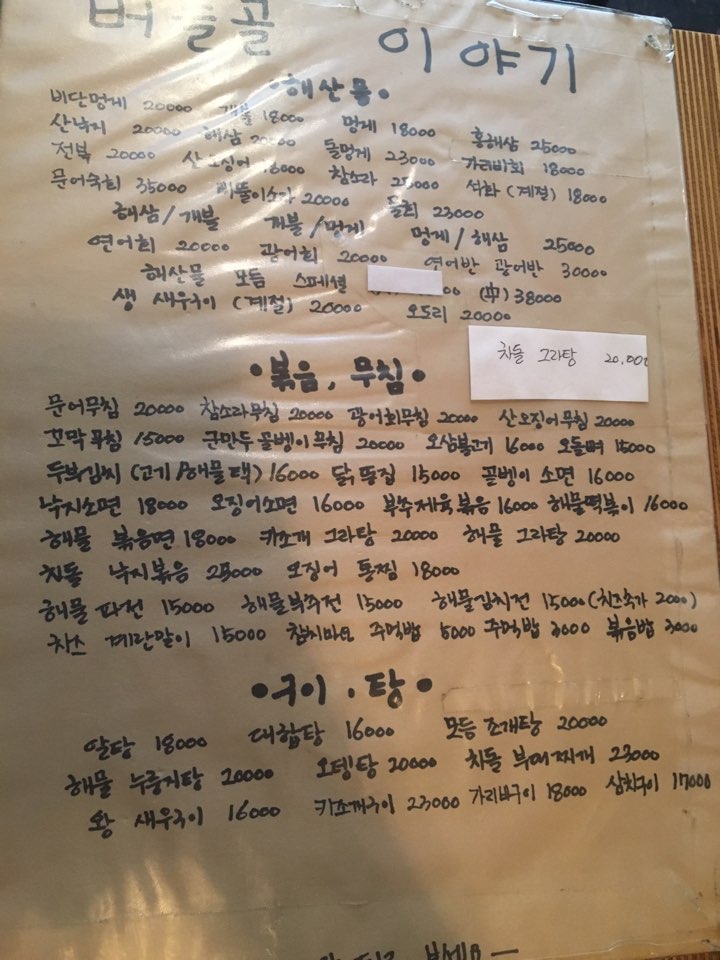 버들골 이야기
•해산물•
비단멍게 20000 개불 18000 멍게 18000 홍해삼 25000
산낙지 20000 해삼 20000 돌멍게 23000 가리비회 18000
전복 20000 산오징어 18000 참소라 25000 석화 (계절) 18000
문어숙회 35000 삐뚤이소라 20000 돌회 23000
해삼/개불 개불/멍게 멍게/해삼 25000
연어회 20000 광어회 20000 연어반 광어반 30000
해산물 모듬 스페셜 00 (中) 38000
생 새우구이 (계절) 20000 오도리 20000
치돌 그라탕 20,000
•볶음, 무침•
문어무침 20000 참소라무침 20000 광어회무침 20000 산오징어무침 20000
꼬막무침 15000 군만두골벵이무침 20000 오삼불고기 16000 오돌뼈 15000
두부김치 (고기/해물택) 16000 닭똥집 15000 골벵이 소면 16000
낙지소면 18000 오징어소면 16000 부추제육볶음 16000 해물떡볶이 16000
해물 볶음면 18000 키조개 그라탕 20000 해물 그라탕 20000
치돌 낙지볶음 25000 오징어 통찜 18000
해물 파전 15000 해물부추전 15000 해물김치전 15000 (치즈추가 2000)
치즈 계란말이 15000 참치마요 주먹밥 5000 주먹밥 3000 볶음밥 3000
•구이 · 탕•
알탕 18000 대합탕 16000 모듬 조개탕 20000
해물 누룽지탕 20000 오뎅탕 20000 치돌 부대찌개 23000
왕 새우구이 16000 키조개구이 23000 가리비구이 18000 삼치구이 17000